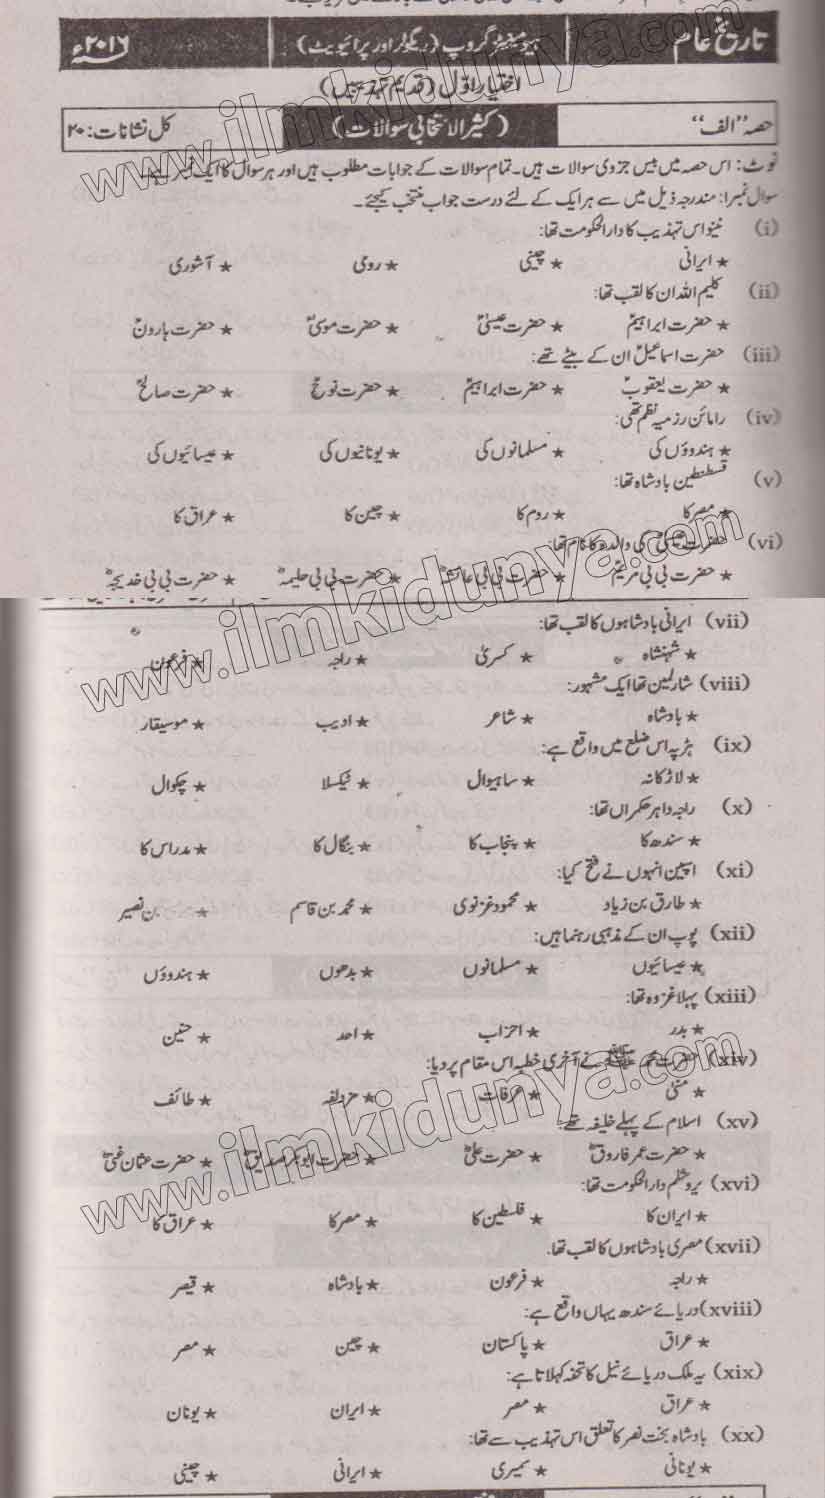 تاریخ عام
ہیومینیٹیز گروپ (ریگولر اور پرائیویٹ)
۲۰۱۶ء
اختیار اوّل (قدیم تہذیبیں)
حصہ "الف"
(کثیر الانتخابی سوالات)
کل نشانات: ۲۰
نوٹ: اس حصہ میں بیس جزوی سوالات ہیں۔ تمام سوالات کے جوابات مطلوب ہیں اور ہر سوال کا ایک نمبر ہے۔
سوال نمبر ۱: مندرجہ ذیل میں سے ہر ایک کے لئے درست جواب منتخب کیجئے۔
(i) نینوا اس تہذیب کا دارالحکومت تھا:
★ ایرانی ★ چینی ★ رومی ★ آشوری
(ii) کلیم اللہ ان کا لقب تھا:
★ حضرت ابراہیمؑ ★ حضرت عیسیٰؑ ★ حضرت موسیٰؑ ★ حضرت ہارونؑ
(iii) حضرت اسماعیلؑ ان کے بیٹے تھے:
★ حضرت یعقوبؑ ★ حضرت ابراہیمؑ ★ حضرت نوحؑ ★ حضرت صالحؑ
(iv) رامائن رزمیہ نظم تھی:
★ ہندوؤں کی ★ مسلمانوں کی ★ یونانیوں کی ★ عیسائیوں کی
(v) قسطنطین بادشاہ تھا:
★ مصر کا ★ روم کا ★ چین کا ★ عراق کا
(vi) حضرت عیسیٰؑ کی والدہ کا نام تھا:
★ حضرت بی بی مریمؑ ★ حضرت بی بی عائشہؓ ★ حضرت بی بی حلیمہؓ ★ حضرت بی بی خدیجہؓ
(vii) ایرانی بادشاہوں کا لقب تھا:
★ شہنشاہ ★ کسریٰ ★ راجہ ★ فرعون
(viii) شارلمین تھا ایک مشہور:
★ بادشاہ ★ شاعر ★ ادیب ★ موسیقار
(ix) ہڑپہ اس ضلع میں واقع ہے:
★ لاڑکانہ ★ ساہیوال ★ ٹیکسلا ★ چکوال
(x) راجہ داہر حکمراں تھا:
★ سندھ کا ★ پنجاب کا ★ بنگال کا ★ مدراس کا
(xi) اسپین انہوں نے فتح کیا:
★ طارق بن زیاد ★ محمود غزنوی ★ محمد بن قاسم ★ بن نصیر
(xii) پوپ ان کے مذہبی رہنما ہیں:
★ عیسائیوں ★ مسلمانوں ★ بدھوں ★ ہندوؤں
(xiii) پہلا غزوہ تھا:
★ بدر ★ احزاب ★ احد ★ حنین
(xiv) حضرت محمد ﷺ نے آخری خطبہ اس مقام پر دیا:
★ منیٰ ★ عرفات ★ مزدلفہ ★ طائف
(xv) اسلام کے پہلے خلیفہ تھے:
★ حضرت عمر فاروقؓ ★ حضرت علیؓ ★ حضرت ابوبکر صدیقؓ ★ حضرت عثمان غنیؓ
(xvi) یروشلم دارالحکومت تھا:
★ ایران کا ★ فلسطین کا ★ مصر کا ★ عراق کا
(xvii) مصری بادشاہوں کا لقب تھا:
★ راجہ ★ فرعون ★ بادشاہ ★ قیصر
(xviii) دریائے سندھ یہاں واقع ہے:
★ عراق ★ پاکستان ★ چین ★ مصر
(xix) یہ ملک دریائے نیل کا تحفہ کہلاتا ہے:
★ عراق ★ مصر ★ ایران ★ یونان
(xx) بادشاہ بخت نصر کا تعلق اس تہذیب سے تھا:
★ یونانی ★ سمیری ★ ایرانی ★ چینی
www.ilmkidunya.com
www.ilmkidunya.com
www.ilmkidunya.com